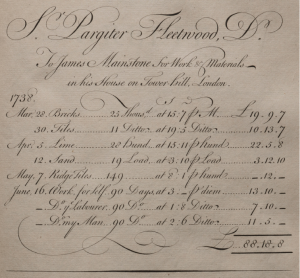 Sr. Pargiter Fleetwood, Dr.
To James Mainstone For Work & Materials
in his House on Tower hill, London.
1738.
Mar. 28. Bricks 25 Thous.d at 15:7 p M. £19.9.7
30. Tiles 11 Ditto at 19:5 Ditto 10.13.7
Apr. 5. Lime 28 Hund. at 15.11 p Hund. 22.5.8
12. Sand 19 Load, at 3:10 p Load 3.12.10
May, 7. Ridge Tiles 149 at 8:1 p hund. -.12.-
June, 16. Work for self 90 Days at 3.- p diem 13.10.-
Do. ye Labourer 90 Do. at 1:8 Ditto 7.10.-
Do. my Man 90 Do. at 2:6 Ditto 11.5.-
£88.18.8